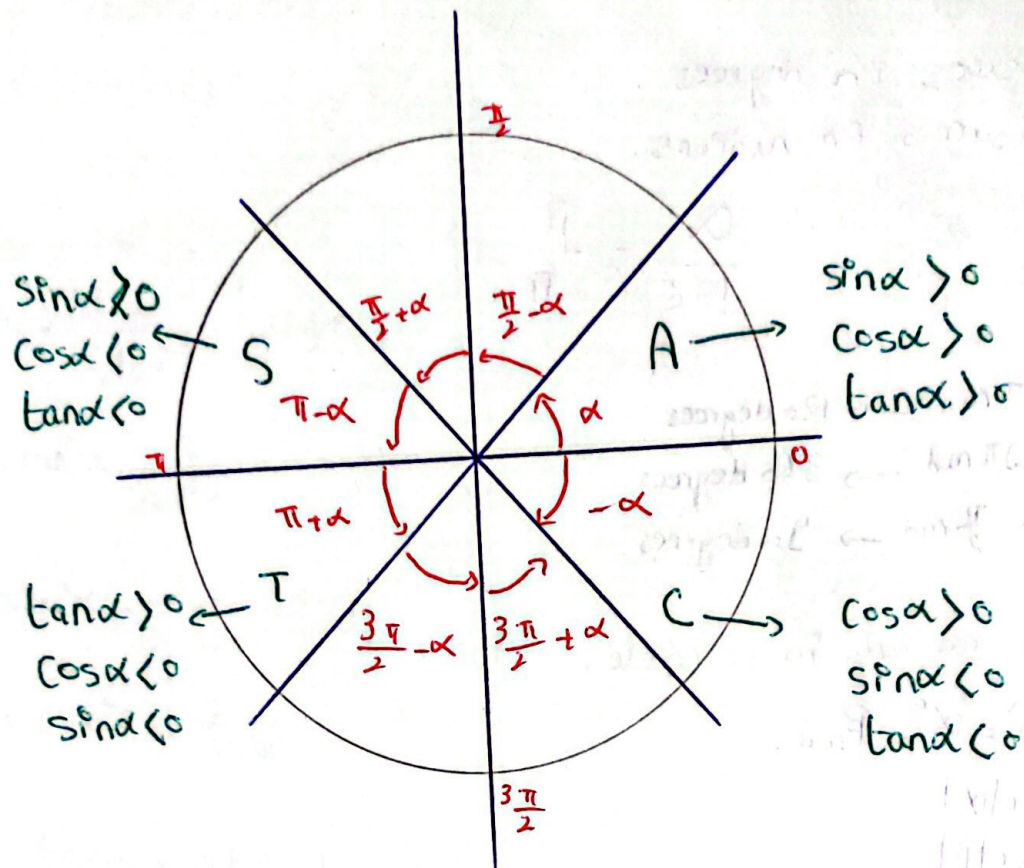 π/2
sinα > 0
cosα < 0
tanα < 0
S
π/2 + α
π/2 - α
A
sinα > 0
cosα > 0
tanα > 0
π - α
α
π
0
π + α
-α
tanα > 0
cosα < 0
sinα < 0
T
3π/2 - α
3π/2 + α
C
cosα > 0
sinα < 0
tanα < 0
3π/2